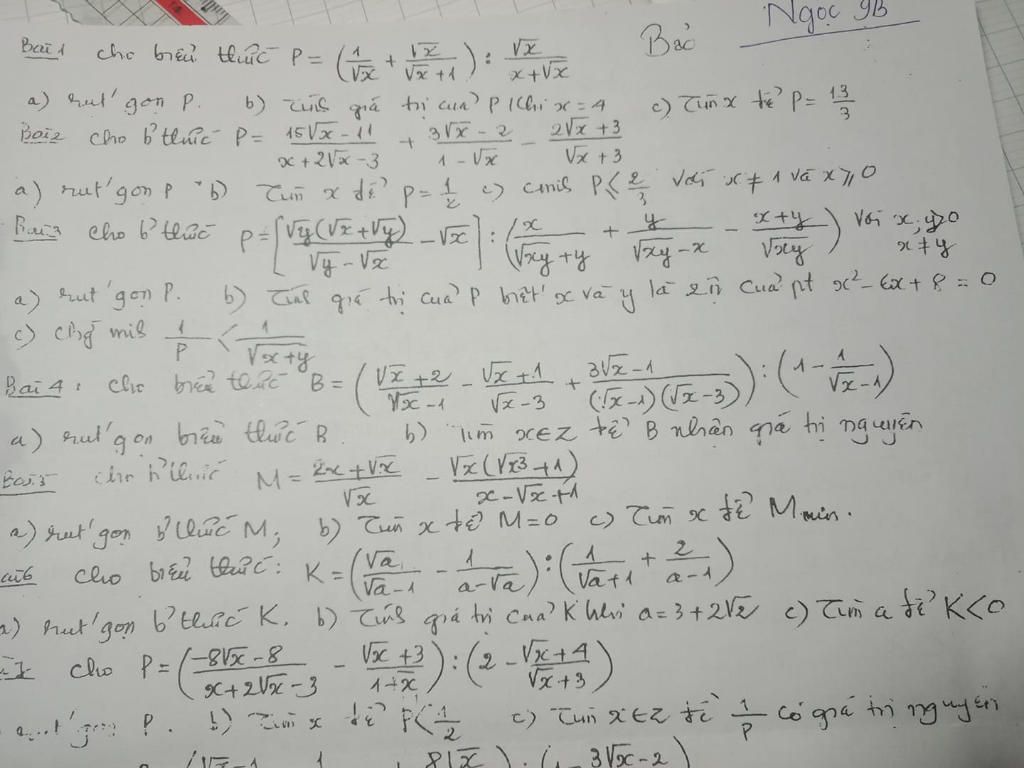 Ngọc 9B
Bảo
Bài 1 cho biểu thức P = (1/√x + √x/(√x+1)) : √x/(x+√x)
a) rút gọn P. b) Tính giá trị của P khi x = 4 c) Tìm x để P = 13/3
Bài 2 cho b' thức P = (15√x - 11)/(x+2√x-3) + (3√x - 2)/(1-√x) - (2√x+3)/(√x+3)
a) rút gọn P b) Tìm x để P = 1/2 c) cmih P ⩽ 2/3 Với x ≠ 1 và x ⩾ 0
Bài 3 cho b' thức P = [√y(√x+√y)/(√y-√x) - √x] : (x/(√xy+y) + y/(√xy-x) - (x+y)/√xy) Với x; y>0
x ≠ y
a) rút gọn P. b) Tính giá trị của P biết x và y là 2 n của pt x² - 6x + 8 = 0
c) chg mih 1/P < 1/√(x+y)
Bài 4: cho biểu thức B = ((√x+2)/(√x-1) - (√x+1)/(√x-3) + (3√x-1)/((√x-1)(√x-3))) : (1 - 1/(√x-1))
a) rút gọn biểu thức B. b) Tìm x∈Z để B nhận giá trị nguyên
Bài 5 cho b' thức M = (2x+√x)/√x - √x(√x3+1)/(x-√x+1)
a) rút gọn b' thức M; b) Tìm x để M = 0 c) Tìm x để M min.
ài 6 cho biểu thức: K = (√a/(√a-1) - 1/(a-√a)) : (1/(√a+1) + 2/(a-1))
a) rút gọn b' thức K. b) Tính giá trị của K khi a = 3+2√2 c) Tìm a để K < 0
cho P = ((-8√x-8)/(x+2√x-3) - (√x+3)/(1-x)) : (2 - (√x+4)/(√x+3))
rút gọn P. b) Tìm x để P < 1/2 c) Tìm x∈Z để 1/P có giá trị nguyên
(√x-1 1 8√x) : (1 - 3√x-2)